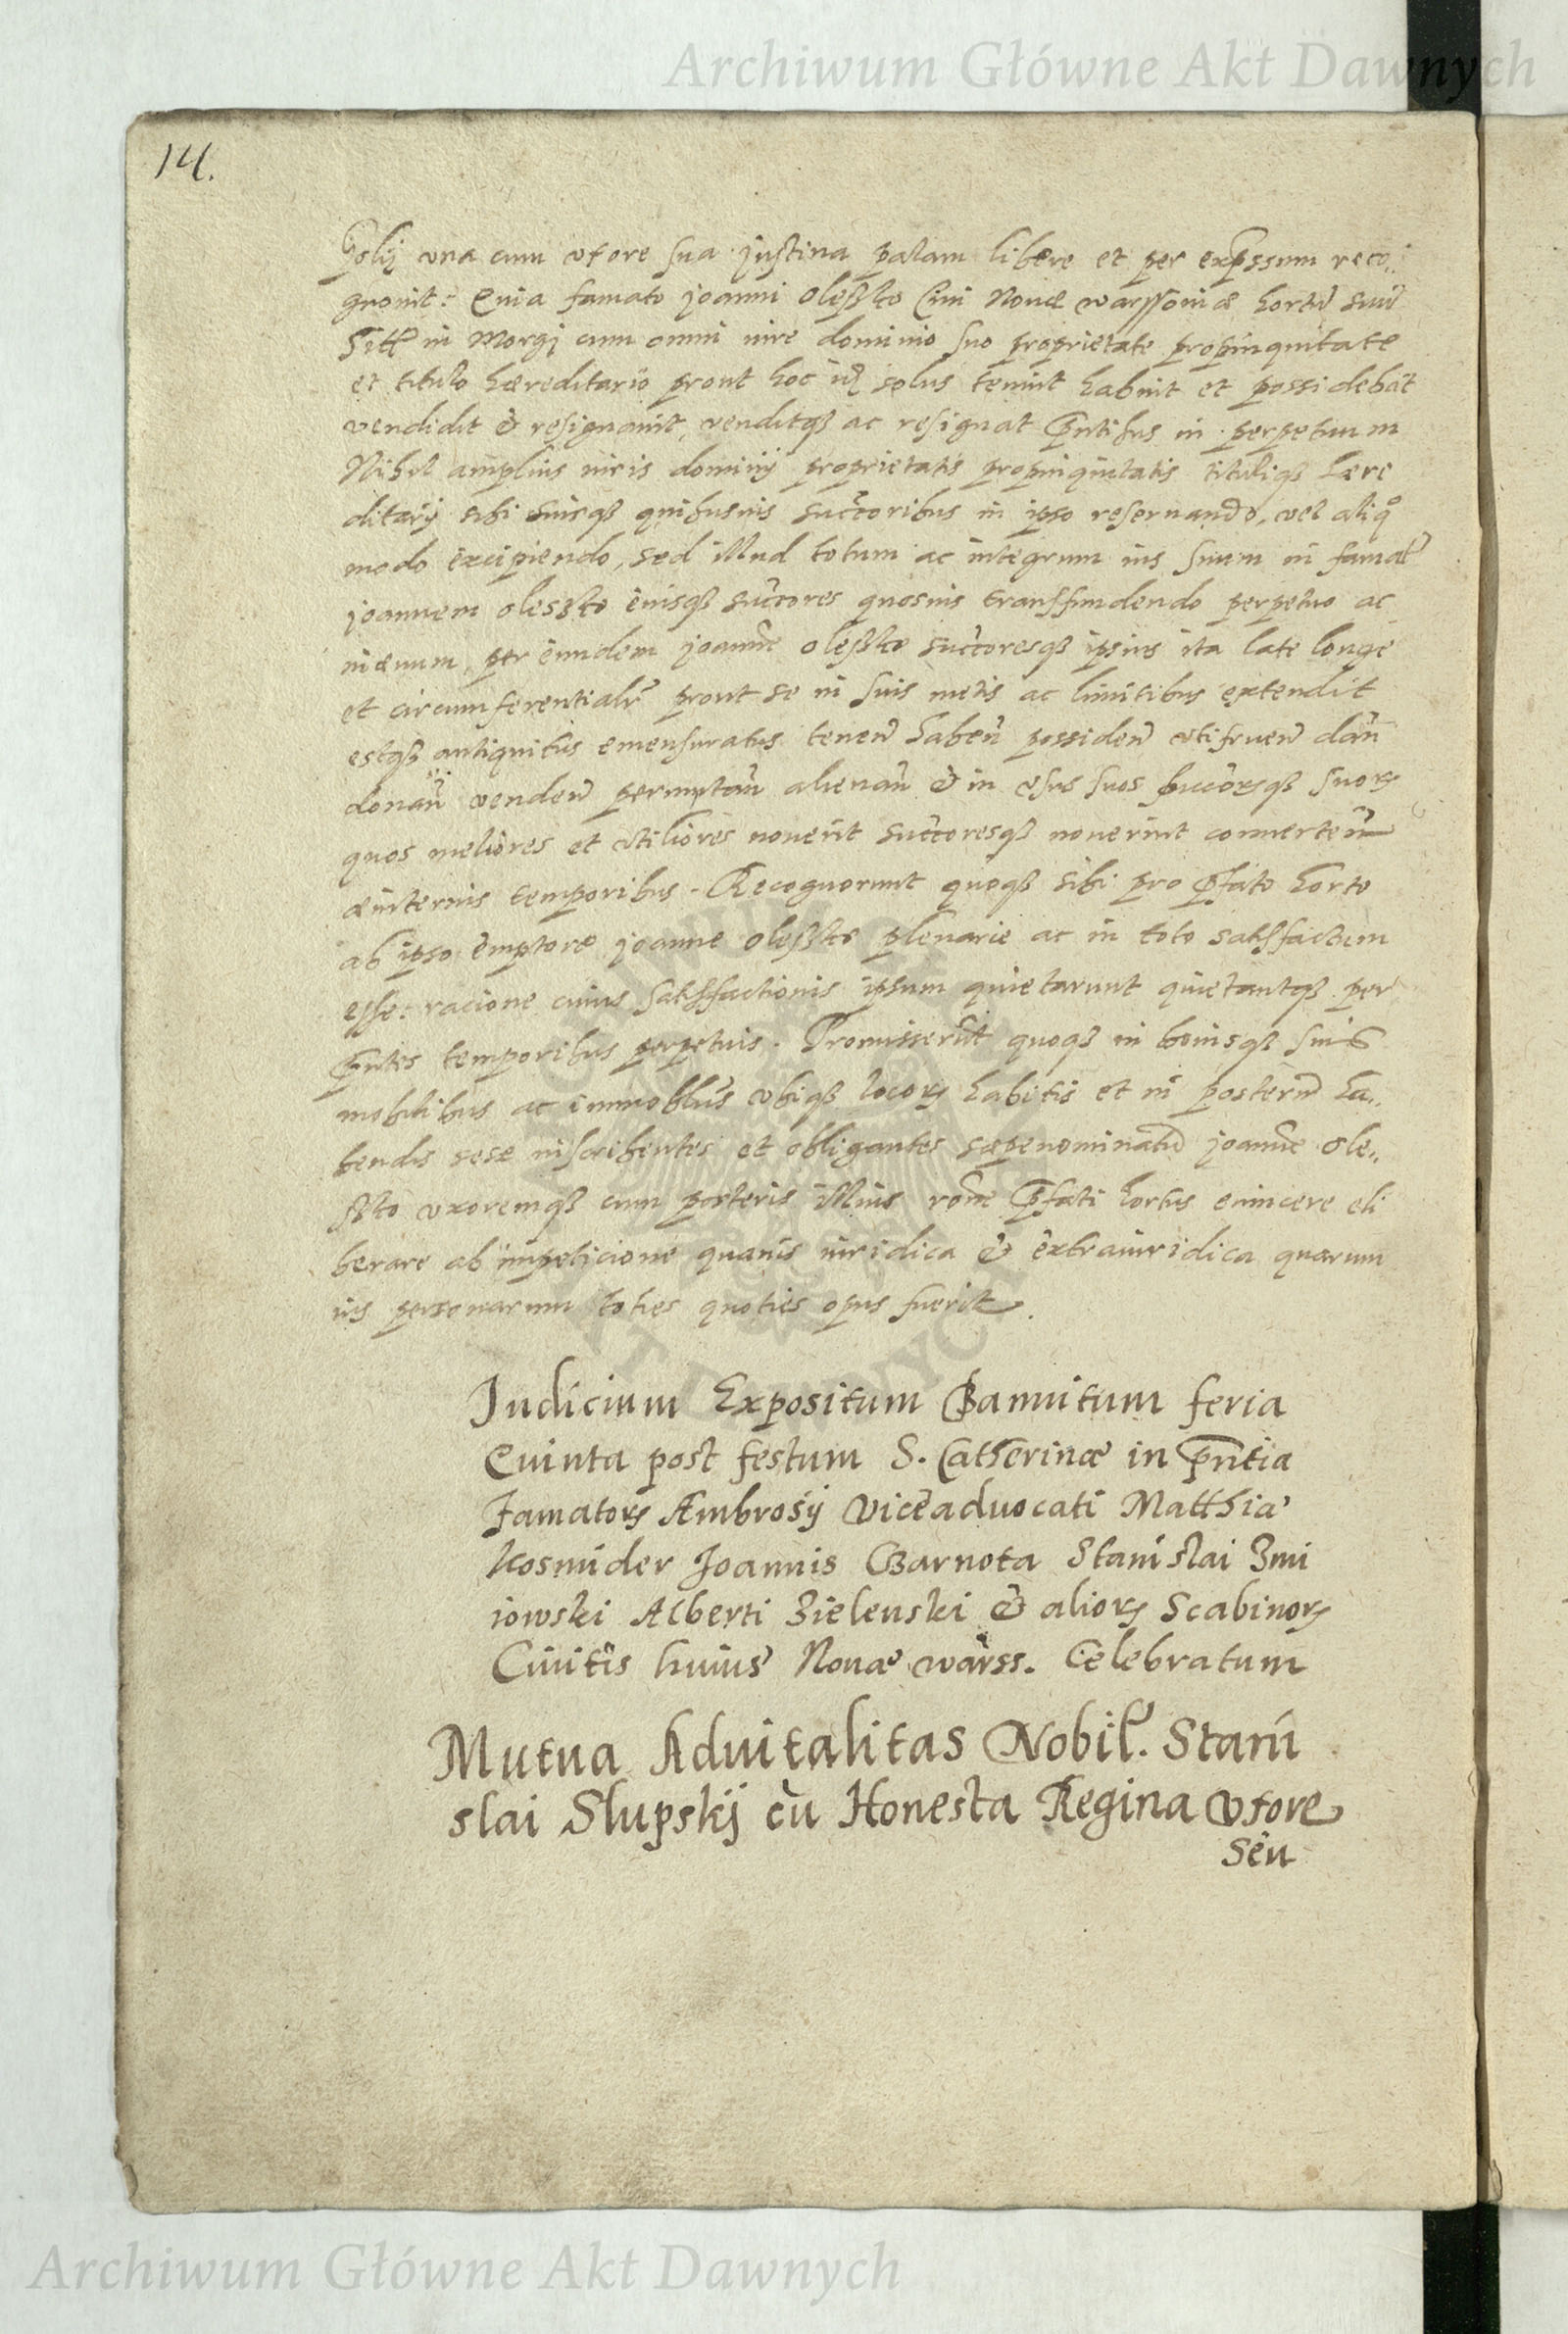 Archiwum Główne Akt Dawnych
14.
Golij vna cum vxore sua justina palam libere et per expssum reco..
gnouit: Quia famato joanni oleszko Ciui Nouæ warssouiæ hortū suū
Sitū in Morgi cum omni iure dominio suo proprietate propinquitate
et titulo hæreditario prout hoc solus tenuit habuit et possidebat
vendidit & resignauit, venditqȝ ac resignat pñtibus in perpetuum
Nihil amplius iuris dominij proprietatis propinquitatis tituliqȝ hære
ditarij sibi suisqȝ quibusuis succoribus in ipso reseruando, vel aliqº
modo excipiendo, sed illud totum ac integrum ius suum in famatū
joannem oleszko eiusqȝ succores quosuis transfundendo perpetuo ac
in æuum, per eundem joannē oleszko succoresqȝ ipsius ita late longe
et circumferentialr prout se in suis metis ac limitibus extendit
estqȝ antiquitus emensuratus tenen̄ haben̄ possiden̄ vtifruen̄ dan̄
donan̄ venden̄ permutan̄ alienan̄ & in vsus suos succorsqȝ suorꝝ
quos meliores et vtiliores nouerit succoresqȝ nouerint conuerten̄
æuiternis temporibus. Recognorunt quoqȝ sibi pro pfato horto
ab ipso emptore joanne oleszko plenarie ac in toto satisfactum
esse: racione cuius satisfactionis ipsum quietarunt quietantqȝ per
pñtes temporibus perpetuis. Promisserūt quoqȝ in bonisqȝ suis
mobilibus ac immoblbus vbiqȝ locorꝝ habitis et in posterū ha..
bendis sese inscribentes et obligantes sæpenominatū joannē ole..
szko vxoremqȝ cum posteris illius rōne pfati hortus euincere eli
berare ab impeticione quauis iuridica & extraiuridica quarum
uis personarum toties quoties opus fuerit.
Judicium Expositum Bannitum feria
Quinta post festum S. Catherinæ in pñtia
Famatorꝝ Ambrosij Viceaduocati Matthiæ
Kosmider Joannis Czarnota Stanislai Zmi
iowski Alberti Zielenski & aliorꝝ Scabinorꝝ
Ciuitis huius Nouæ warss. Celebratum
Mutua Aduitalitas Nobil. Stani
slai Slupskij cū Honesta Regina vxore
Seu
Archiwum Główne Akt Dawnych